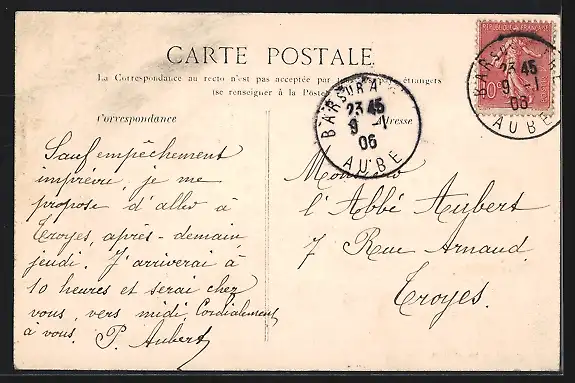 CARTE POSTALE
La Correspondance au recto n'est pas acceptée par étrangers
(se renseigner à la Poste
Correspondance
Adresse
BAR SUR A
23 45
9 -1
06
AUBE
RÉPUBLIQUE FRANÇAISE
BAR SUR
23 45
9 -1
06
AUBE
Sauf empêchement
imprévu, je me
propose d'aller à
Troyes, après-demain
jeudi. J'arriverai à
10 heures et serai chez
vous, vers midi. Cordialement
à vous. P. Aubert
Monsieur
l'Abbé Aubert
7 Rue Arnaud
Troyes.